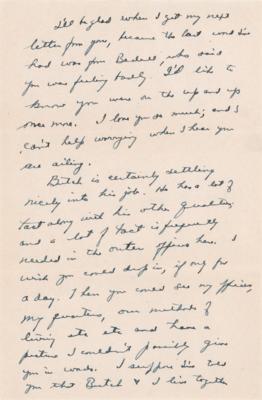 I'll be glad when I get my next
letter from you, because the last word I've
had was from Bedell, who said
you was feeling badly. I'd like to
know you were on the up and up
once more. I love you so much, and I
can't help worrying when I hear you
are ailing.
Butch is certainly settling
nicely into his job. He has a lot of
tact along with his other qualities
and a lot of tact is frequently
needed in the outer offices here. I
wish you could drop in, if only for
a day. Then you could see my offices,
my quarters, our methods of
living etc etc and have a
picture I couldn't possibly give
you in words. I suppose I've told
you that Butch & I live together